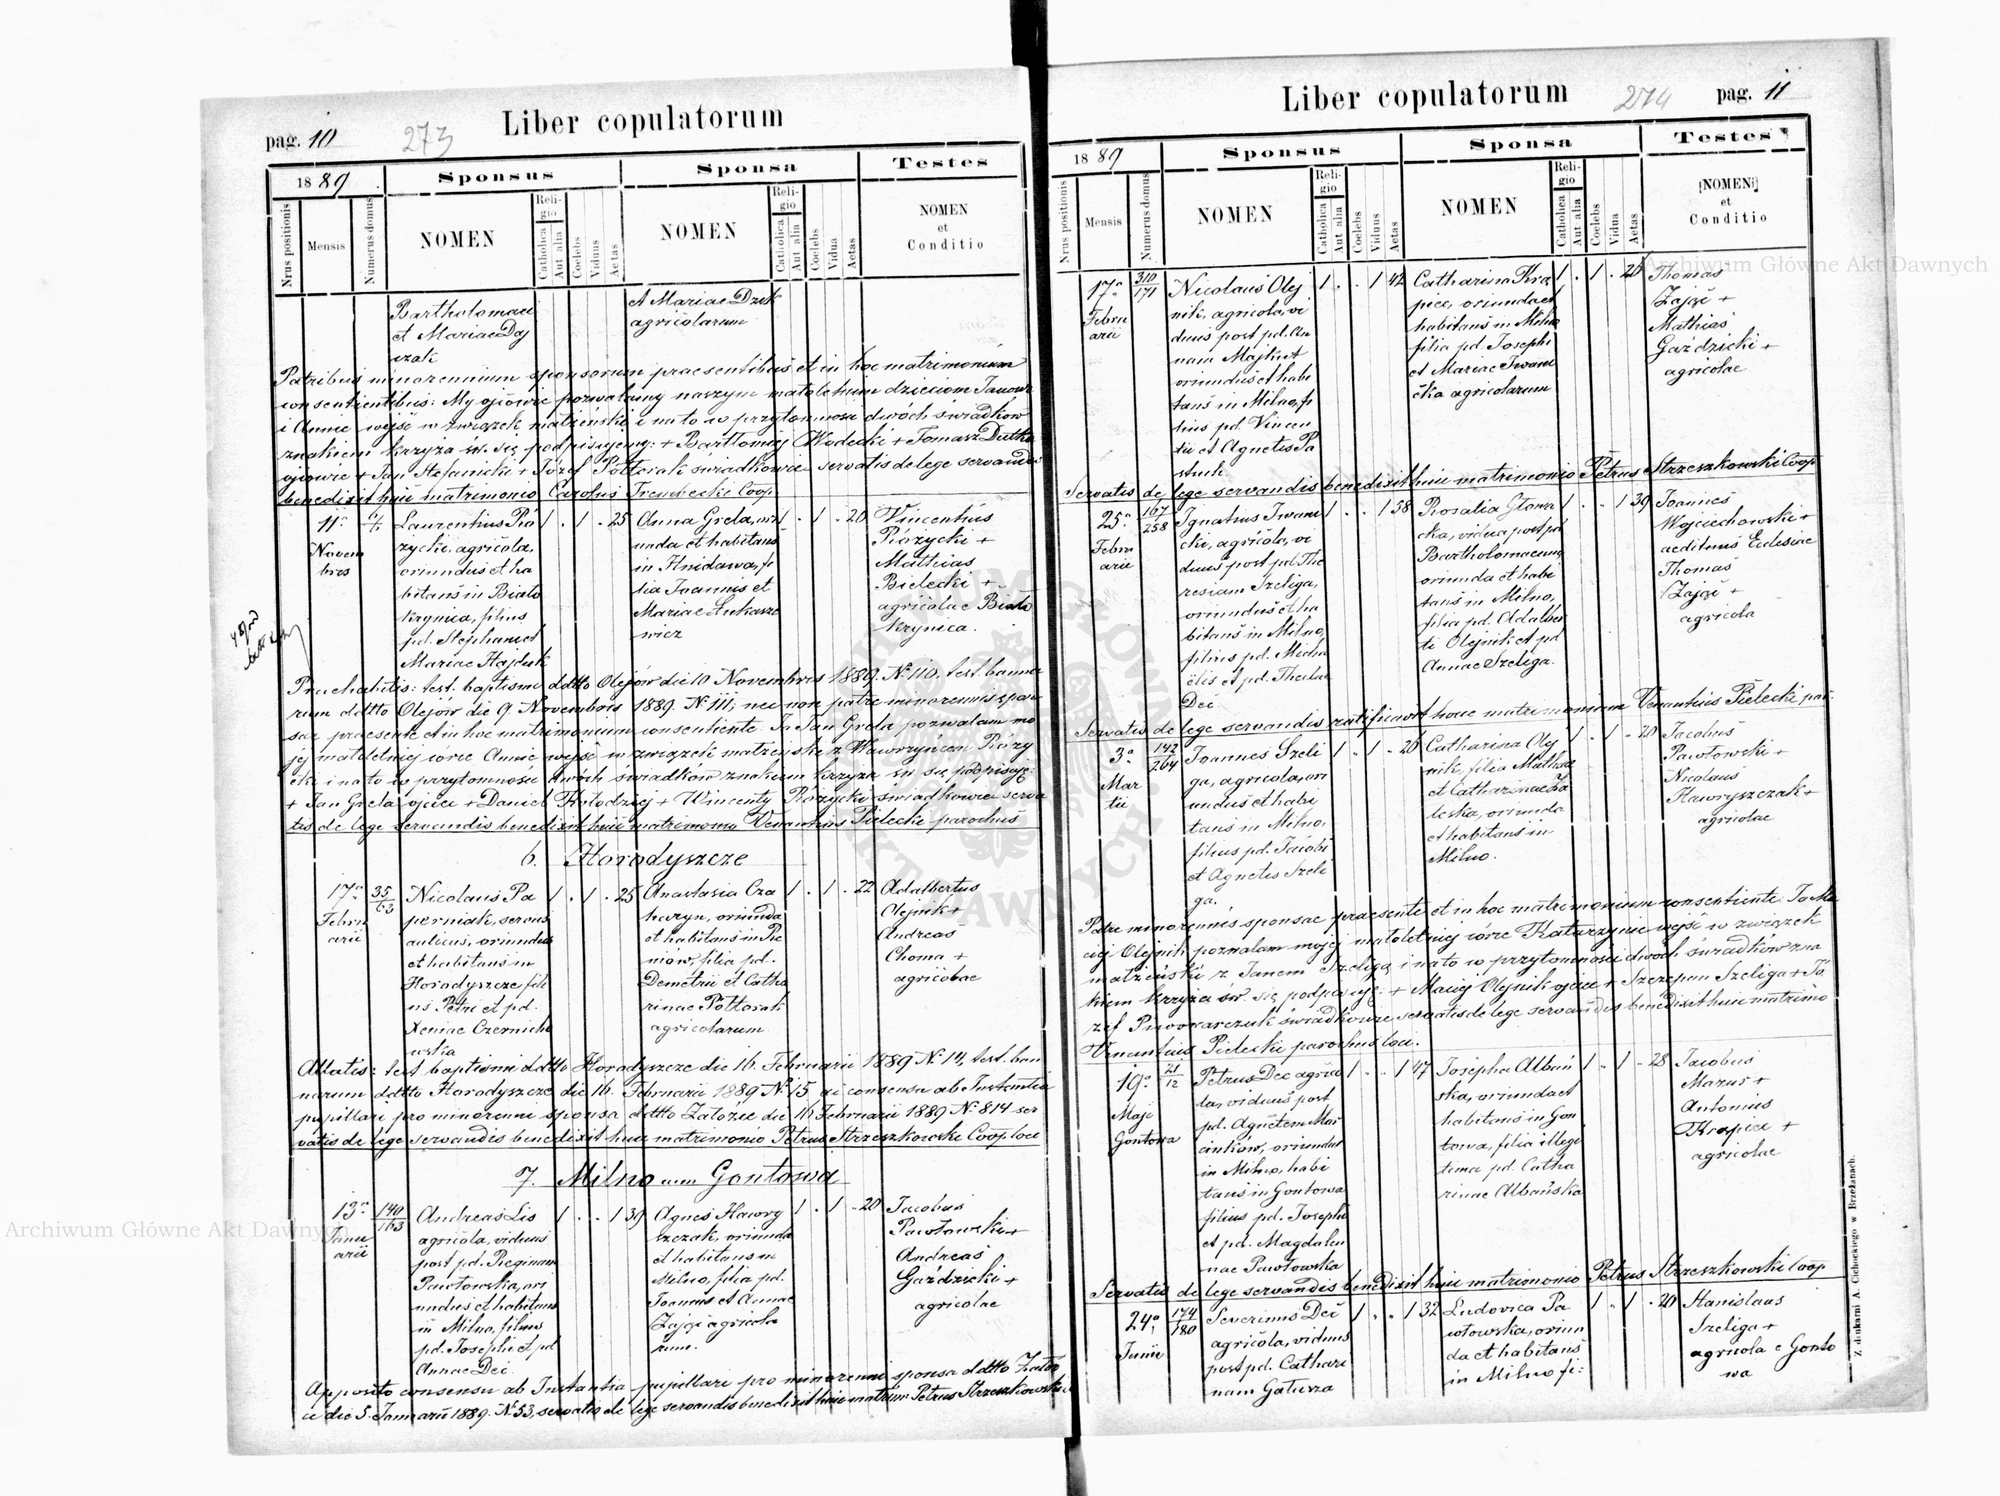 Liber copulatorum
pag. 10
273
1889
Sponsus
Sponsa
Testes
Nrus positionis
Mensis
Numerus domus
NOMEN
Religio
Catholica
Aut alia
Coelebs
Viduus
Aetas
NOMEN
Religio
Catholica
Aut alia
Coelebs
Vidua
Aetas
NOMEN
et
Conditio
Bartholomaei
et Mariae Daj
czak
et Mariae Dzek
agricolarum
Patribus minorennium sponsorum praesentibus et in hoc matrimonium
consentientibus: My ojcowie pozwalamy naszym małoletnim dzieciom Janowi
i Annie wejść w związek małżeński i na to w przytomności dwóch świadków
znakiem krzyża św. się podpisujemy: + Bartłomiej Wodecki + Tomasz Dutka
ojcowie + Jan Stefanicki + Józef Półtorak świadkowie servatis de lege servandis
benedixit huic matrimonio Carolus Trembecki Coop.
11a
Novem
bris
Laurentius Ró
życki, agricola,
oriundus et ha
bitans in Biało
krynica, filius
pd. Stephani et
Mariae Hajduk
1 . 1 . 25
Anna Grela, ori
unda et habitans
in Hnidawa, fi
lia Joannis et
Mariae Łukasze
wicz
1 . 1 . 20
Vincentius
Różycki +
Mathias
Bielecki +
agricolae Biało
krynica.
Praehabitis: test. baptismi ddtto Olejów die 10 Novembris 1889. N. 110, test. banno
rum ddtto Olejów die 9. Novembris 1889. N. 111; nec non patre minorennis spon
sae praesente et in hoc matrimonium consentiente. Ja Jan Grela pozwalam mo
jej małoletniej córce Annie wejść w związek małżeński z Wawrzyńcem Róży
ckim i na to w przytomności dwóch świadków znakiem krzyża św. się podpisuję:
+ Jan Grela ojciec + Daniel Kołodziej + Wincenty Różycki świadkowie serva
tis de lege servandis benedixit huic matrimonio Venantius Pielecki parochus
6. Horodyszcze
17a
Febru
arii
35
63
Nicolaus Pa
perniak, servus
aulicus, oriundus
et habitans in
Horodyszcze fili
us Petri et pd.
Xeniae Czernich
owska
1 . 1 . 25
Anastasia Cza
harzyn, oriunda
et habitans in Re
niow, filia pd.
Demetrii et Catha
rinae Półtorak
agricolarum
1 . 1 . 22
Adalbertus
Olejnik +
Andreas
Choma +
agricolae
Allatis: test baptismi ddtto Horodyszcze die 16. Februarii 1889 N. 14, test. ban
norum ddtto Horodyszcze die 16. Februarii 1889 N. 15 ac consensu ab Instantia
pupillari pro minorenni sponsa ddtto Załoźce die 16 Februarii 1889 N. 814 ser
vatis de lege servandis benedixit huic matrimonio Petrus Strzeszkowski Coop. loci
7. Milno cum Gontowa
13a
Janu
arii
140
163
Andreas Lis
agricola, viduus
post pd. Reginam
Pawłowska, ori
undus et habitans
in Milno, filius
pd. Josephi et pd
Annae Dec
1 . . 1 39
Agnes Hawry
szczak, oriunda
et habitans in
Milno, filia pd.
Joannis et Annae
Zając agricola
rum.
1 . 1 . 20
Jacobus
Pawłowski +
Andreas
Gaździcki +
agricolae
Apposito consensu ab Instantia pupillari pro minorenni sponsa ddtto Załoź
ce die 5. Januarii 1889. N. 53, servatis de lege servandis benedixit huic matrim. Petrus Strzeszkowski
Liber copulatorum
274
pag. 11
1889
Sponsus
Sponsa
Testes
Nrus positionis
Mensis
Numerus domus
NOMEN
Religio
Catholica
Aut alia
Coelebs
Viduus
Aetas
NOMEN
Religio
Catholica
Aut alia
Coelebs
Vidua
Aetas
NOMEN
et
Conditio
17a
Febru
arii
310
171
Nicolaus Olej
nik, agricola, vi
duus post pd. An
nam Majkut
oriundus et habi
tans in Milno, fi
lius pd. Vincen
tii et Agnetis Pa
stuch
1 . . 1 42
Catharina Kra
piec, oriunda et
habitans in Milno
filia pd. Josephi
et Mariae Iwani
cka agricolarum
1 . 1 . 26
Thomas
Zając +
Mathias
Gaździcki +
agricolae
Servatis de lege servandis benedixit huic matrimonio Petrus Strzeszkowski Coop
25a
Febru
arii
167
258
Ignatius Iwani
cki, agricola, vi
duus post pd. The
resiam Szeliga,
oriundus et ha
bitans in Milno,
filius pd. Micha
ëlis et pd. Theclae
Dec
1 . . 1 58
Rosalia Głowa
cka, vidua post pd
Bartholomaeum
oriunda et habi
tans in Milno,
filia pd. Adalber
ti Olejnik et pd
Annae Szeliga.
1 . . 1 39
Joannes
Wojciechowski +
aedituus Ecclesiae
Thomas
Zając +
agricola
Servatis de lege servandis ratificavit hoc matrimonium Venantius Pielecki par.
3a
Mar
tii
142
264
Joannes Szeli
ga, agricola, ori
undus et habi
tans in Milno,
filius pd. Jacobi
et Agnetis Szeli
ga.
1 . 1 . 26
Catharina Olej
nik, filia Mathiae
et Catharinae Za
leska, oriunda
et habitans in
Milno.
1 . 1 . 20
Jacobus
Pawłowski +
Nicolaus
Hawryszczak +
agricolae
Patre minorennis sponsae praesente et in hoc matrimonium consentiente. Ja Ma
ciej Olejnik pozwalam mojej małoletniej córce Katarzynie wejść w związek
małżeński z Janem Szeligą i na to w przytomności dwóch świadków zna
kiem krzyża św. się podpisuję: + Maciej Olejnik ojciec + Szczepan Szeliga + Jó
zef Piwowarczuk świadkowie servatis de lege servandis benedixit huic matrimo
Venantius Pielecki parochus loci.
19a
Maji
Gontowa
21
12
Petrus Dec agrico
la, viduus post
pd. Agnetem Maś
ciuków, oriundus
in Milno, habi
tans in Gontowa
filius pd. Josephi
et pd. Magdalen
nae Pawłowska
1 . . 1 47
Josepha Albań
ska, oriunda et
habitans in Gon
towa, filia illegi
tima pd. Catha
rinae Albańska
1 . 1 . 28
Jacobus
Mazur +
Antonius
Krapiec +
agricolae
Servatis de lege servandis benedixit huic matrimonio Petrus Strzeszkowski Coop
24a
Junii
174
180
Severinus Dec
agricola, viduus
post pd. Cathari
nam Gałusza
1 . . 1 32
Ludovica Pa
włowska, oriun
da et habitans
in Milno fi:
1 . 1 . 20
Stanislaus
Szeliga +
agricola e Gonto
wa
Z drukarni A. Cichockiego w Brzeżanach.
Archiwum Główne Akt Dawnych
Archiwum Główne Akt Dawnych
ARCHIWUM GŁÓWNE AKT DAWNYCH